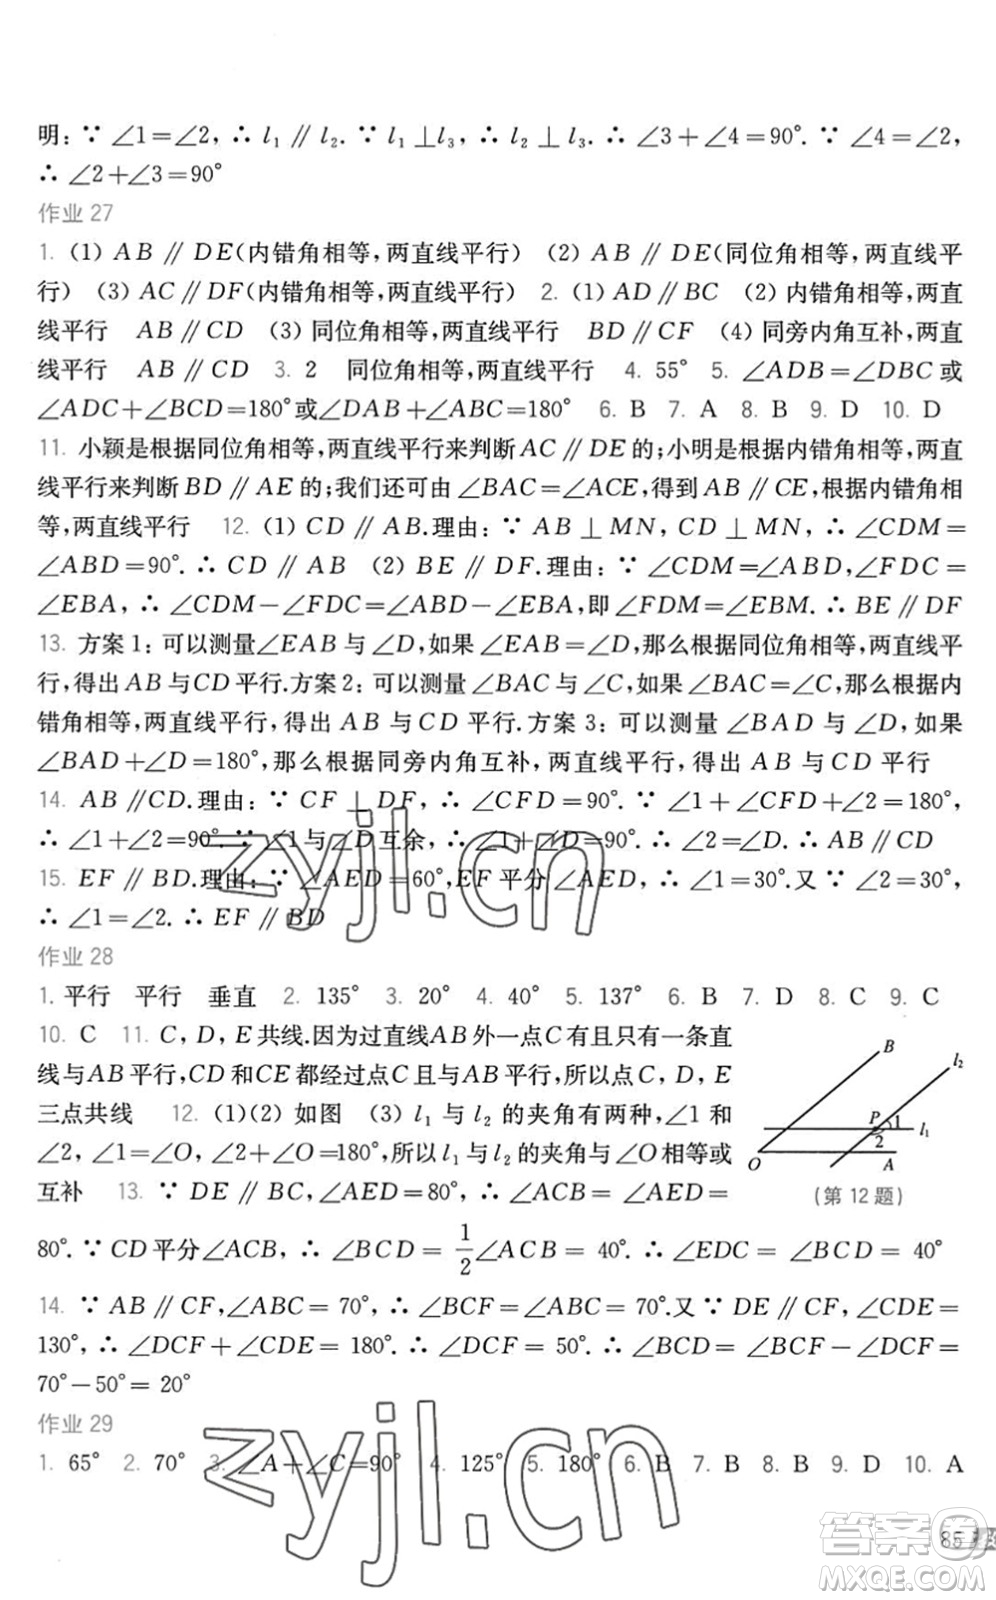 明：∵ ∠1=∠2, ∴ l₁ ∥ l₂. ∵ l₁⊥l₃, ∴ l₂⊥l₃. ∴ ∠3+∠4=90°. ∵ ∠4=∠2,
∴ ∠2+∠3=90°
作业 27
1. (1) AB ∥ DE(内错角相等,两直线平行) (2) AB ∥ DE(同位角相等,两直线平
行) (3) AC∥DF(内错角相等,两直线平行) 2. (1) AD∥BC (2) 内错角相等,两直
线平行 AB∥CD (3) 同位角相等,两直线平行 BD∥CF (4) 同旁内角互补,两直
线平行 AB∥CD 3. 2 同位角相等,两直线平行 4. 55° 5. ∠ADB=∠DBC或
∠ADC+∠BCD=180°或∠DAB+∠ABC=180° 6. B 7. A 8. B 9. D 10. D
11. 小颖是根据同位角相等,两直线平行来判断AC∥DE的;小明是根据内错角相等,两直
线平行来判断BD∥AE的;我们还可由∠BAC=∠ACE,得到AB∥CE,根据内错角相
等,两直线平行 12. (1) CD∥AB.理由：∵ AB⊥MN, CD⊥MN, ∴ ∠CDM=
∠ABD=90°. ∴ CD∥AB (2) BE∥DF.理由：∵ ∠CDM=∠ABD,∠FDC=
∠EBA, ∴ ∠CDM-∠FDC=∠ABD-∠EBA,即∠FDM=∠EBM. ∴ BE∥DF
13. 方案1：可以测量∠EAB与∠D,如果∠EAB=∠D,那么根据同位角相等,两直线平
行,得出AB与CD平行.方案2：可以测量∠BAC与∠C,如果∠BAC=∠C,那么根据内
错角相等,两直线平行,得出AB与CD平行.方案3：可以测量∠BAD与∠D,如果
∠BAD+∠D=180°,那么根据同旁内角互补,两直线平行,得出AB与CD平行
14. AB∥CD.理由：∵ CF⊥DF, ∴ ∠CFD=90°. ∵ ∠1+∠CFD+∠2=180°,
∴ ∠1+∠2=90°. ∵ ∠1与∠D互余, ∴ ∠1+∠D=90°. ∴ ∠2=∠D. ∴ AB∥CD
15. EF∥BD.理由：∵ ∠AED=60°,EF平分∠AED, ∴ ∠1=30°.又∵ ∠2=30°,
∴ ∠1=∠2. ∴ EF∥BD
zyjl.cn
作业 28
1. 平行 平行 垂直 2. 135° 3. 20° 4. 40° 5. 137° 6. B 7. D 8. C 9. C
10. C 11. C, D, E共线.因为过直线AB外一点C有且只有一条直
线与AB平行,CD和CE都经过点C且与AB平行,所以C, D, E
三点共线 12. (1)(2) 如图 (3) l₁与l₂的夹角有两种,∠1和
∠2,∠1=∠O,∠2+∠O=180°,所以l₁与l₂的夹角与∠O相等或
互补 13. ∵ DE∥BC,∠AED=80°, ∴ ∠ACB=∠AED=
B l₂ P 1 2 l₁ O A
(第12题)
80°. ∵ CD平分∠ACB, ∴ ∠BCD=1/2∠ACB=40°. ∴ ∠EDC=∠BCD=40°
14. ∵ AB∥CF,∠ABC=70°, ∴ ∠BCF=∠ABC=70°.又∵ DE∥CF,∠CDE=
130°, ∴ ∠DCF+∠CDE=180°. ∴ ∠DCF=50°. ∴ ∠BCD=∠BCF-∠DCF=
70°-50°=20°
作业 29
1. 65° 2. 70° 3. ∠A+∠C=90° 4. 125° 5. 180° 6. B 7. B 8. B 9. D 10. A
zyjl.cn
85
答案圈
MXQE.COM